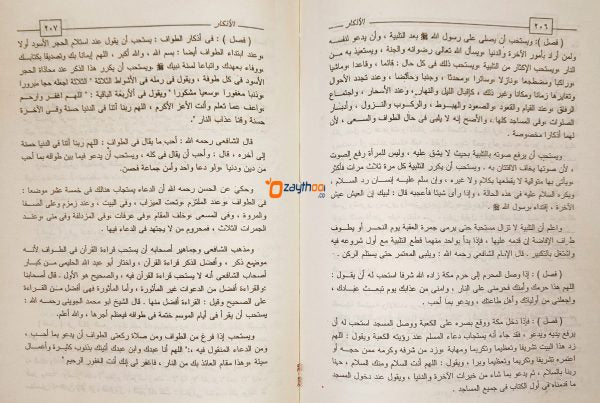 ٢٠٦ الأذكار
( فصل ): ويستحب أن يصلى على رسول الله ﷺ بعد التلبية ، وأن يدعو لنفسه
ولمن أراد بأمور الآخرة والدنيا ، ويسأل الله تعالى رضوانه والجنة ، ويستعيذ به من
النار ، ويستحب الإكثار من التلبية ويستحب ذلك فى كل حال : قائما ، وقاعدا ، وماشيا
، وراكبا ، ومضطجعا ، ونازلا ، وسائرا ، ومحدثا ، وجنبا ، وحائضا ، وعند تجدد الأحوال
وتغايرها زمانا ومكانا وغير ذلك ، كإقبال الليل والنهار ، وعند الأسحار ، واجتماع
الرفاق ، وعند القيام والقعود ، والصعود والهبوط ، والركوب والنزول ، وأدبار
الصلوات ، وفى المساجد كلها ، والأصح إنه لا يلبى فى حال الطواف والسعى ، لأن
لهما أذكارا مخصوصة .
ويستحب أن يرفع صوته بالتلبية بحيث لا يشق عليه ، وليس للمرأة رفع الصوت
لأن صوتها يخاف الافتتان به . ويستحب أن يكرر التلبية كل مرة ثلاث مرات فأكثر
، ويأتى بها متوالية لا يقطعها بكلام ولا غيره ، وإن سلم عليه إنسان رد السلام ،
ويكره السلام عليه فى هذه الحالة ، وإذا رأى شيئا فأعجبه قال : لبيك إن العيش عيش
الآخرة ، إقتداء برسول الله ﷺ .
واعلم أن التلبية لا تزال مستحبة حتى يرمى جمرة العقبة يوم النحر أو يطوف
طواف الإفاضة إن قدمه عليها ، فإذا بدأ بواحد منهما قطع التلبية مع أول شروعه فيه
واشتغل بالتكبير . قال الإمام الشافعى رحمه الله : ويلبى المعتمر حتى يستلم الركن .
( فصل ) : إذا وصل المحرم إلى حرم مكة زاده الله شرفا استحب له أن يقول :
اللهم هذا حرمك وأمنك فحرمنى على النار ، وأمنى من عذابك يوم تبعث عبادك ،
واجعلنى من أوليائك وأهل طاعتك ، ويدعو بما أحب .
( فصل ) : فإذا دخل مكة ووقع بصره على الكعبة ووصل المسجد استحب له أن
يرفع يديه ويدعو ، فقد جاء أنه يستجاب دعاء المسلم عند رؤيته الكعبة ويقول : اللهم
زد هذا البيت تشريفا وتعظيما وتكريما ومهابة ، وزد من شرفه وكرمه ممن حجه أو
اعتمره تشريفا وتكريما وتعظيما وبرا ، ويقول : اللهم أنت السلام ومنك السلام ، حينا
ربنا بالسلام ، ثم يدعو بما شاء من خيرات الآخرة والدنيا ، ويقول عند دخول المسجد
ما قدمناه فى أول الكتاب فى جميع المساجد .
الأذكار ٢٠٧
( فصل ) : فى أذكار الطواف : يستحب أن يقول عند استلام الحجر الأسود أولا
، وعند ابتداء الطواف أيضا : بسم الله ، والله أكبر ، اللهم إيمانا بك وتصديقا بكتابك
، ووفاء بعهدك واتباعا لسنة نبيك ﷺ . ويستحب أن يكرر هذا الذكر عند محاذاة الحجر
الأسود فى كل طوفة ، ويقول فى رمله فى الأشواط الثلاثة " اللهم اجعله حجا مبرورا
، وذنبا مغفورا ، وسعيا مشكورا " ويقول فى الأربعة الباقية : " اللهم اغفر وارحم
، واعف عما تعلم وأنت الأعز الأكرم ، اللهم ربنا آتنا فى الدنيا حسنة وفى الآخرة
حسنة وقنا عذاب النار "
قال الشافعى رحمه الله : أحب ما يقال فى الطواف : اللهم ربنا آتنا فى الدنيا حسنة
إلى آخره ، قال : وأحب أن يقال فى كله ، ويستحب أن يدعو فيما بين طوافه بما أحب
من دين ودنيا ، ولو دعا واحد وأمن جماعة فحسن .
وحكى عن الحسن رحمه الله أن الدعاء يستجاب هنالك فى خمسة عشر موضعا :
فى الطواف ، وعند الملتزم ، وتحت الميزاب ، وفى البيت ، وعند زمزم وعلى الصفا
والمروة ، وفى المسعى ، وخلف المقام ، وفى عرفات ، وفى المزدلفة وفى منى ، وعند
الجمرات الثلاث ، فمحروم من لا يجتهد فى الدعاء فيها .
ومذهب الشافعى وجماهير أصحابه أن يستحب قراءة القرآن فى الطواف لأنه
موضع ذكر ، وأفضل الذكر قراءة القرآن ، واختار أبو عبد الله الحليمى من كبار
أصحاب الشافعى أنه لا يستحب قراءة القرآن فيه ، والصحيح هو الأول . قال أصحابنا
: والقراءة أفضل من الدعوات غير المأثورة ، وأما المأثورة فهى أفضل من القراءة
على الصحيح وقيل : القراءة أفضل منها . قال الشيخ أبو محمد الجوينى رحمه الله :
يستحب أن يقرأ فى أيام الموسم ختمة فى طوافه فيعظم أجرها ، والله أعلم .
ويستحب إذا فرغ من الطواف ومن صلاة ركعتى الطواف أن يدعو بما أحب ،
ومن الدعاء المنقول فيه : " اللهم أنا عبدك وابن عبدك أتيتك بذنوب كثيرة وأعمال
سيئة ، وهذا مقام العائذ بك من النار ، فاغفر لى إنك أنت الغفور الرحيم "
Ozaythoo
.co